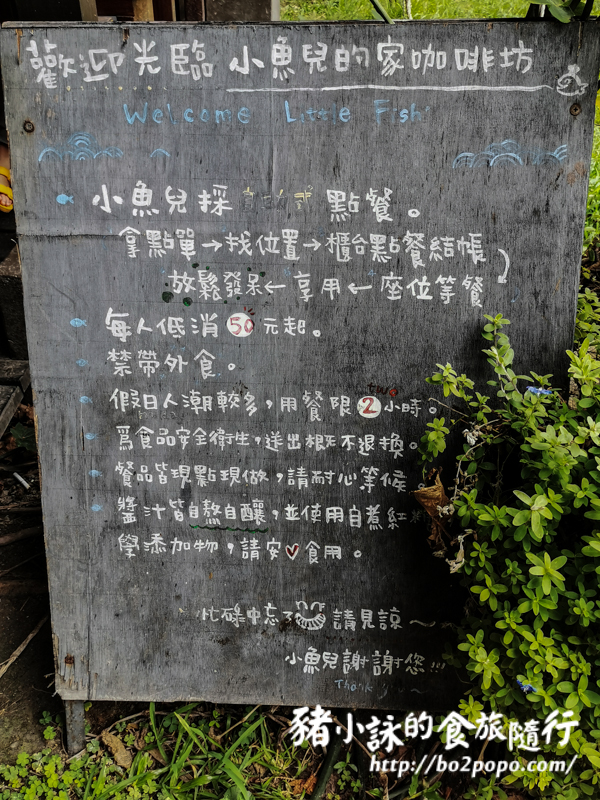 歡迎光臨 小魚兒的家咖啡坊
Welcome Little Fish
小魚兒採 點餐。
拿點單→找位置→櫃台點餐結帳
放鬆發呆←享用←座位等餐
每人低消50元起。
禁帶外食。
two
假日人潮較多,用餐限2小時。
爲食品安全衛生,送出概不退換。
餐品皆現點現做,請耐心等候
醬汁皆自熬自釀,並使用自煮紅
學添加物,請安♡食用。
忙碌中忘了 請見諒~
小魚兒謝謝您!!!
Thank
豬小詠的食旅隨行
http://bo2popo.com/